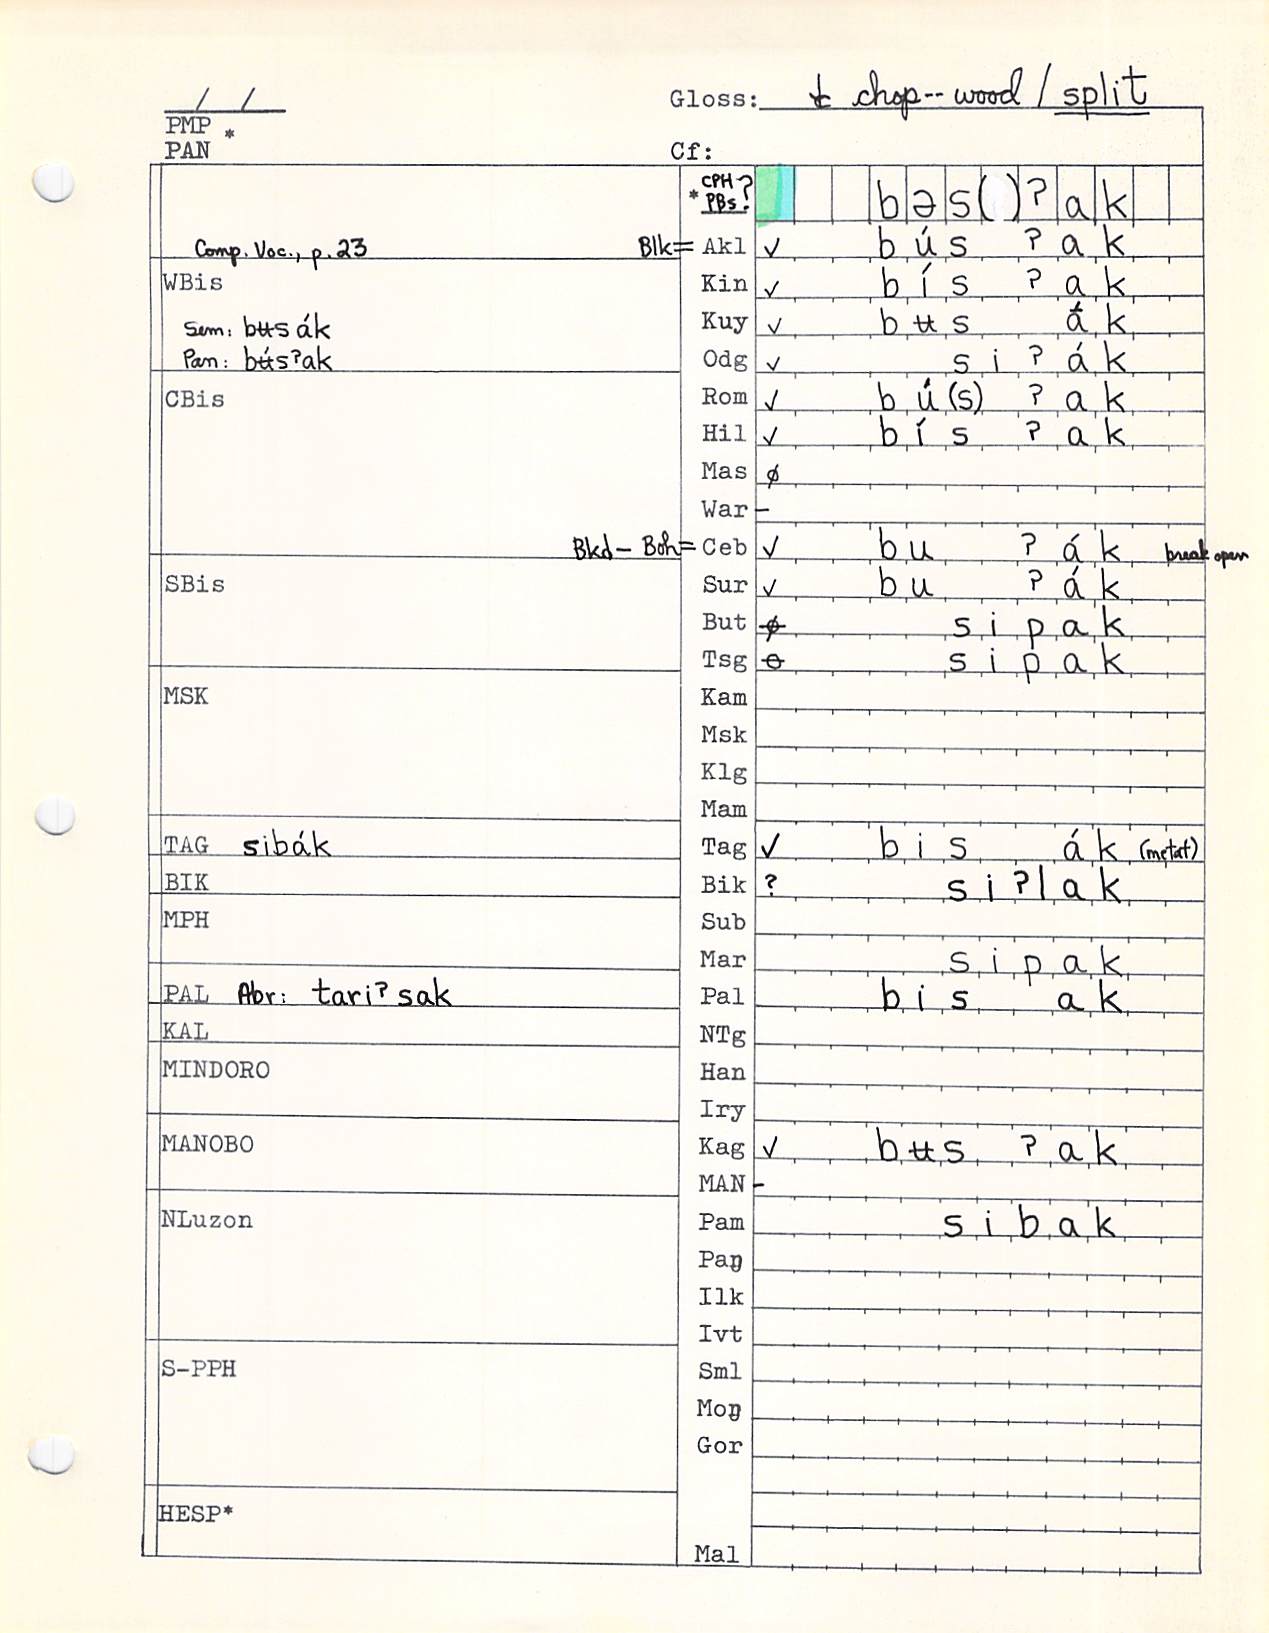 / /
Gloss: t chop -- wood / split
PMP *
PAN
Cf:
* CPH? PBs? bəs( )ʔak
Comp. Voc., p.23
Blk= Akl ✓ búsʔak
WBis
Kin ✓ bísʔak
Sem: bʉsák
Kuy ✓ bʉsák
Pan: bʉ́sʔak
Odg ✓ siʔák
CBis
Rom ✓ bú(s)ʔak
Hil ✓ bísʔak
Mas ∅
War -
Bkd - Boh= Ceb ✓ buʔák break open
SBis
Sur ✓ buʔák
But ∅ sipak
Tsg ⊖ sipak
MSK
Kam
Msk
Klg
Mam
TAG sibák
Tag ✓ bisák (metat)
BIK
Bik ? siʔlak
MPH
Sub
Mar sipak
PAL Abr: tariʔsak
Pal bisak
KAL
NTg
MINDORO
Han
Iry
MANOBO
Kag ✓ bʉsʔak
MAN -
NLuzon
Pam sibak
Paŋ
Ilk
Ivt
S-PPH
Sml
Moŋ
Gor
HESP*
Mal